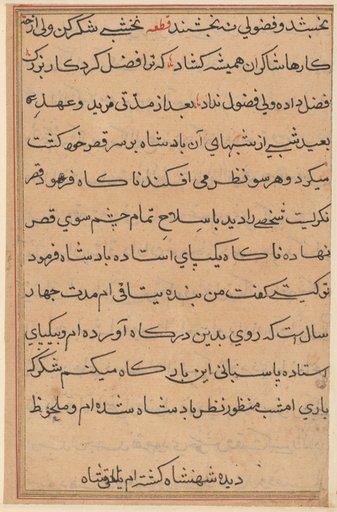 بخشند و فضولی نه بخشند قطعه نخشبی شکر کن ولی
کارها شاکران همیشه کشاد که ترا فضل کردکار بزرک
فضل داده ولی فضول نداد بعد از مدتی مزید و عهدی
بعید شبی از شبهای آن بادشاه بر سر قصر خود کشت
میکرد و هر سو نظر می افکند ناکاه فرود قصر
نکریست شخصی را دید با سلاح تمام چشم سوی قصر
نهاده ناکاه بیکپای استاده بادشاه فرمود
تو کیستی کفت من بنده یتاقی ام مدت چهار
سال ست که روی بدین درکاه آورده ام و بیکپای
استاده پاسبانی این بارکاه میکنم شکر که
باری امشب منظور نظر بادشاه شده ام و ملحوظ
دیده شهنشاه کشته ام